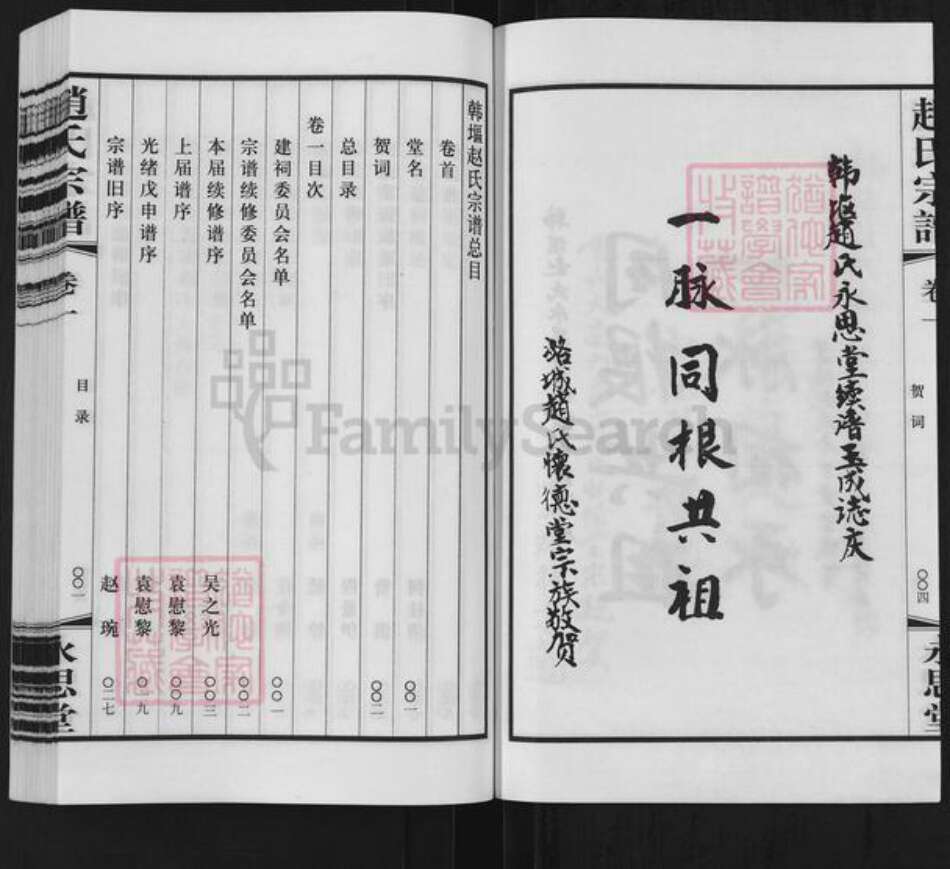 赵氏宗谱 卷一 贺词 〇〇四 永思堂
韩堰赵氏永思堂续谱玉成志庆
一脉同根共祖
潞城趙氏懷德堂宗族敬贺
韩堰赵氏宗谱总目
卷首
堂名 〇〇一
贺词 〇〇二
总目录
卷一目次
建祠委员会名单 〇〇一
宗谱续修委员会名单 〇〇二
本届续修谱序 吴之光 〇〇三
上届谱序 袁慰黎 〇〇九
光绪戊申谱序 袁慰黎 〇一九
宗谱旧序 赵琬 〇二七
趙氏宗譜 卷一 目录 〇〇一 永思堂
FamilySearch